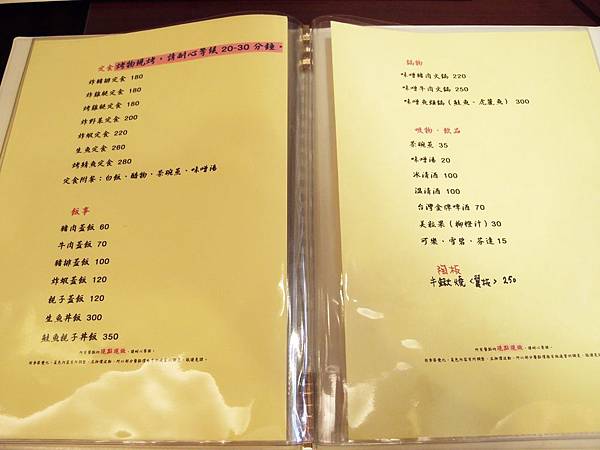 定食 烤物現烤，請耐心等候 20-30 分鐘。
炸豬排定食 180
炸雞腿定食 180
烤雞腿定食 180
炸野菜定食 200
炸蝦定食 220
生魚定食 280
烤鯖魚定食 280
定食附餐：白飯、醋物、茶碗蒸、味噌湯
飯事
豬肉蓋飯 60
牛肉蓋飯 70
豬排蓋飯 100
炸蝦蓋飯 120
親子蓋飯 120
生魚丼飯 300
鮭魚親子丼飯 350
所有餐點均現點現做，請耐心等候。
鍋物
味噌豬肉火鍋 220
味噌牛肉火鍋 250
味噌魚雞鍋（鮭魚、虎蓋魚） 300
吸物、飲品
茶碗蒸 35
味噌湯 20
冰清酒 100
溫清酒 100
台灣金牌啤酒 70
美粒果（柳橙汁）30
可樂、雪碧、芬達 15
陶板
牛鍬燒<陶板> 250
所有餐點均現點現做，請耐心等候。